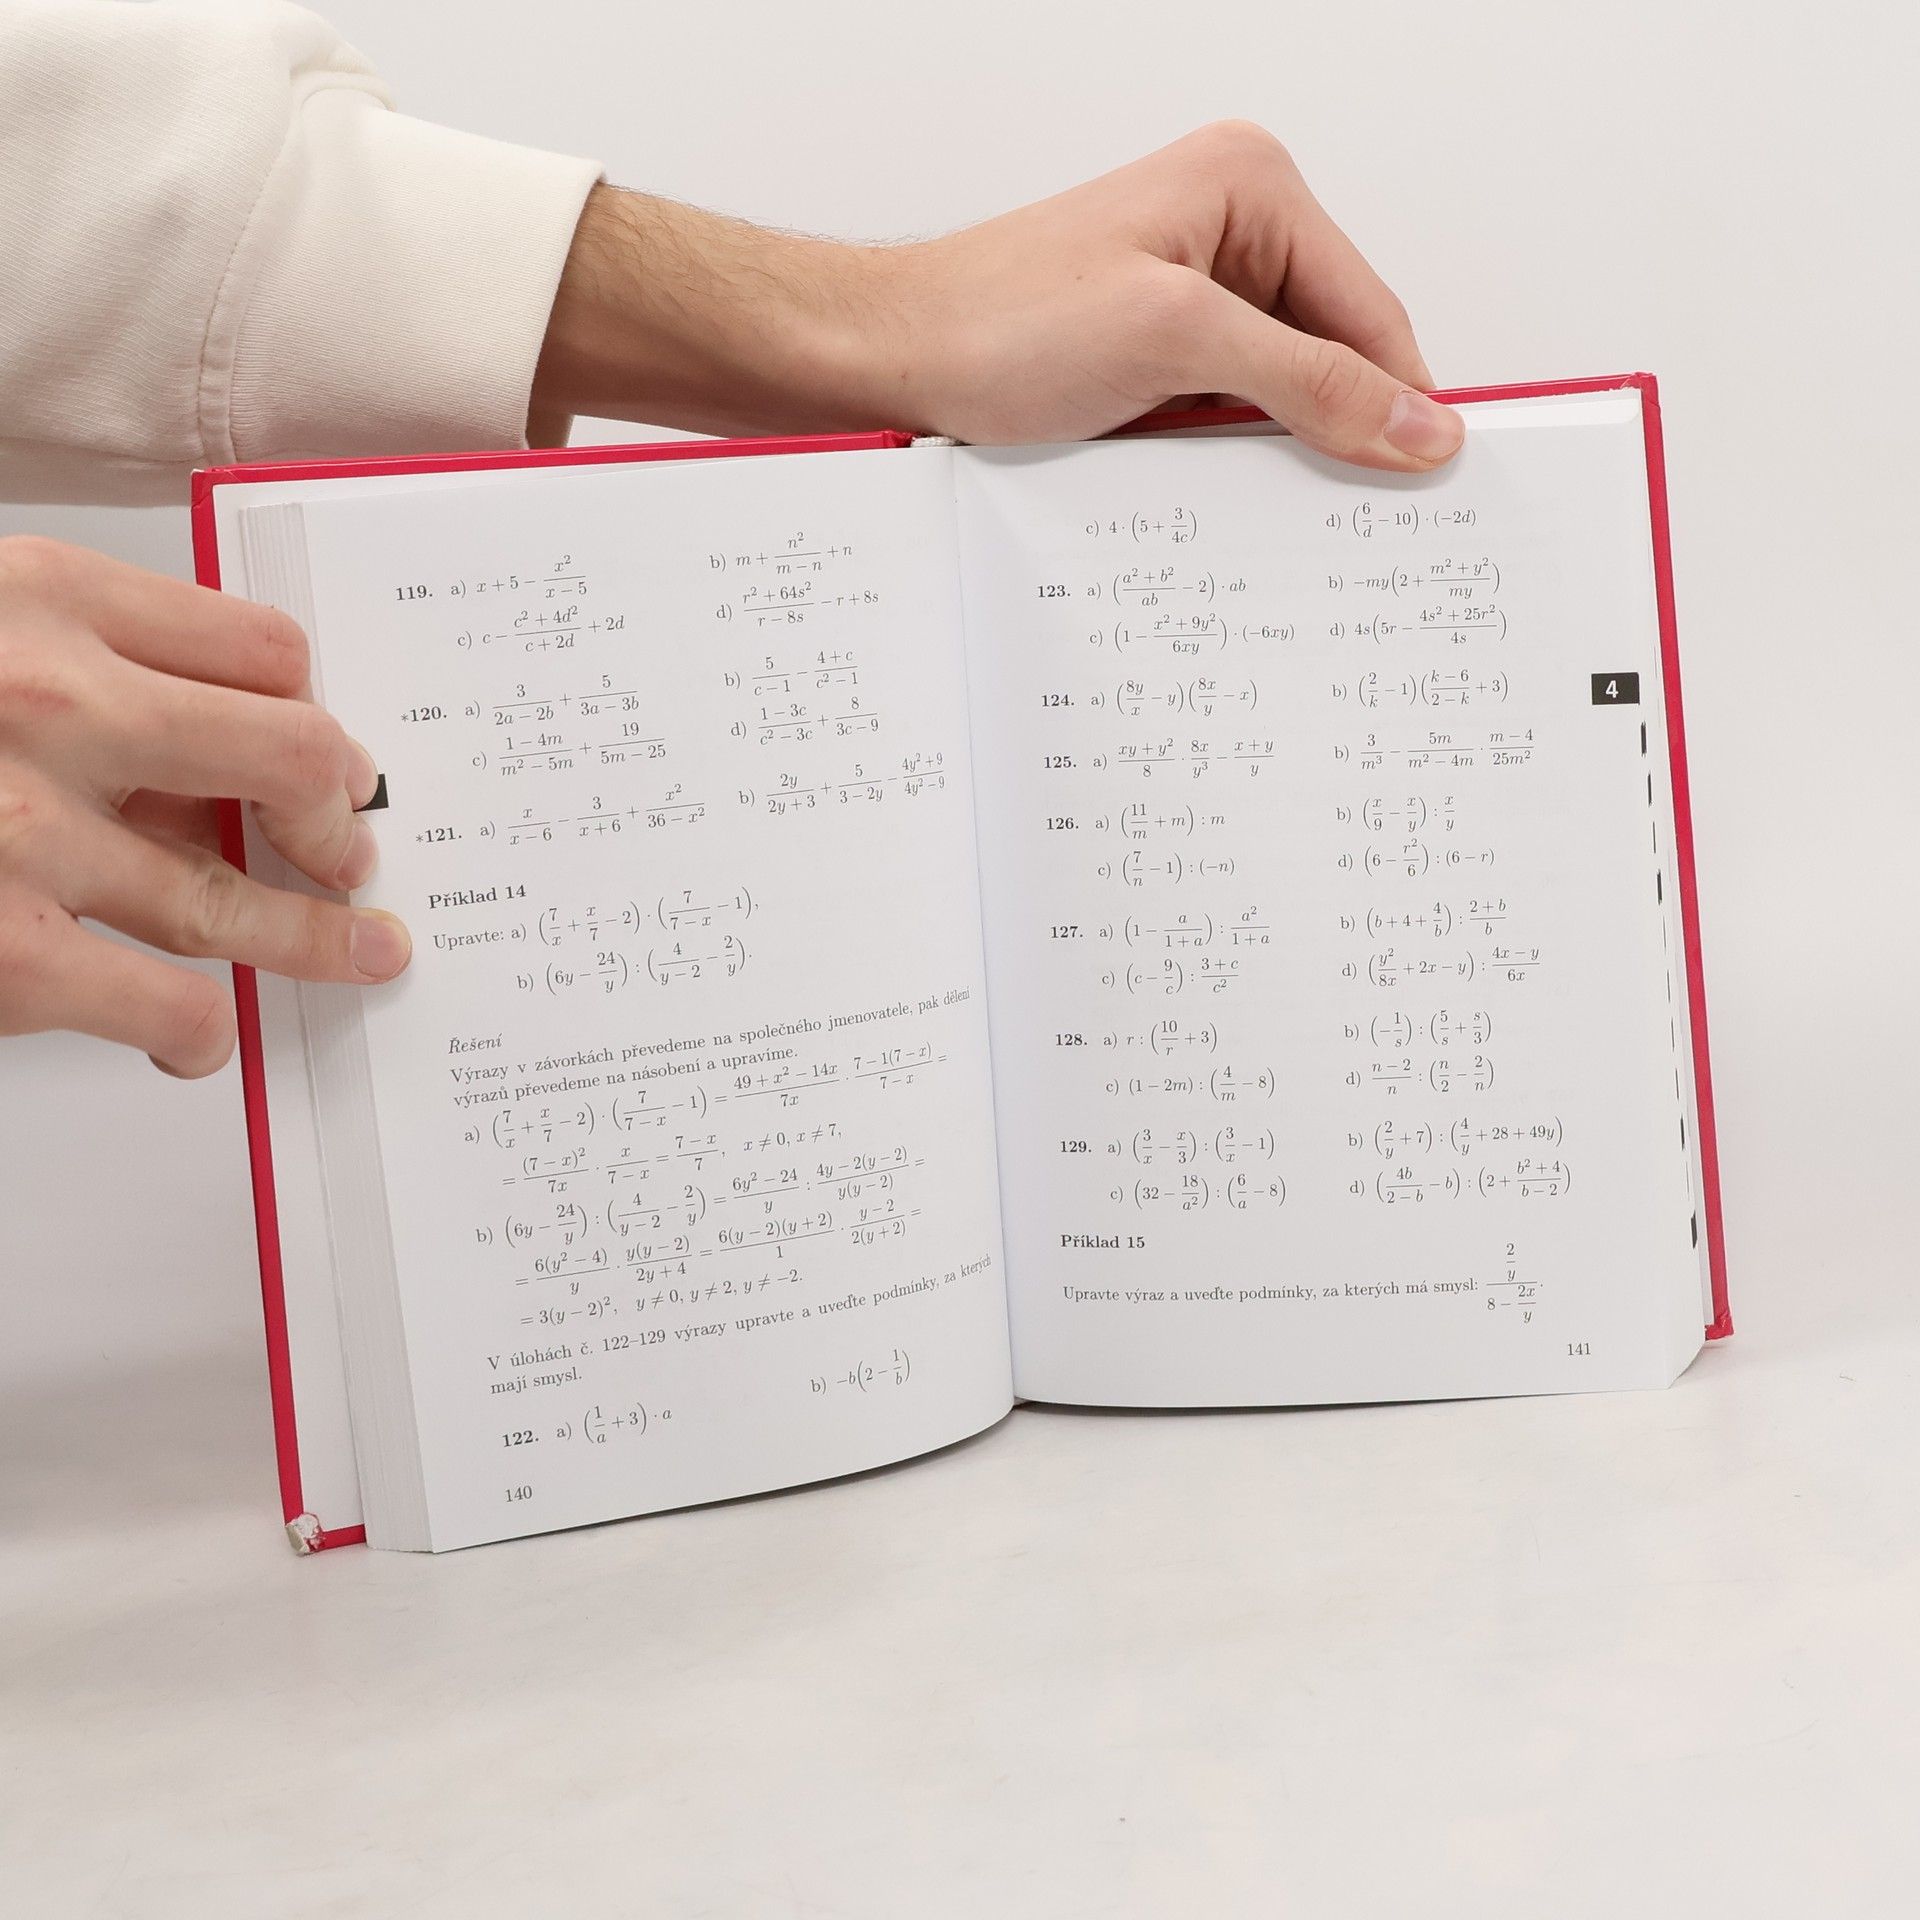 119. a) x + 5 − x²/(x − 5) b) m + n²/(m − n) + n
c) c − (c² + 4d²)/(c + 2d) + 2d d) (r² + 64s²)/(r − 8s) − r + 8s
*120. a) 3/(2a − 2b) + 5/(3a − 3b) b) 5/(c − 1) − (4 + c)/(c² − 1)
c) (1 − 4m)/(m² − 5m) + 19/(5m − 25) d) (1 − 3c)/(c² − 3c) + 8/(3c − 9)
*121. a) x/(x − 6) − 3/(x + 6) + x²/(36 − x²) b) 2y/(2y + 3) + 5/(3 − 2y) − (4y² + 9)/(4y² − 9)
Příklad 14
Upravte: a) (7/x + x/7 − 2) · (7/(7 − x) − 1),
b) (6y − 24/y) : (4/(y − 2) − 2/y).
Řešení
Výrazy v závorkách převedeme na společného jmenovatele, pak dělení
výrazů převedeme na násobení a upravíme.
a) (7/x + x/7 − 2) · (7/(7 − x) − 1) = (49 + x² − 14x)/7x · (7 − 1(7 − x))/(7 − x) =
= (7 − x)²/7x · x/(7 − x) = (7 − x)/7, x ≠ 0, x ≠ 7,
b) (6y − 24/y) : (4/(y − 2) − 2/y) = (6y² − 24)/y : (4y − 2(y − 2))/(y(y − 2)) =
= 6(y² − 4)/y · y(y − 2)/(2y + 4) = 6(y − 2)(y + 2)/1 · (y − 2)/(2(y + 2)) =
= 3(y − 2)², y ≠ 0, y ≠ 2, y ≠ −2.
V úlohách č. 122–129 výrazy upravte a uveďte podmínky, za kterých
mají smysl.
122. a) (1/a + 3) · a b) −b(2 − 1/b)
140
c) 4 · (5 + 3/4c) d) (6/d − 10) · (−2d)
123. a) ((a² + b²)/ab − 2) · ab b) −my(2 + (m² + y²)/my)
c) (1 − (x² + 9y²)/6xy) · (−6xy) d) 4s(5r − (4s² + 25r²)/4s)
124. a) (8y/x − y)(8x/y − x) b) (2/k − 1)((k − 6)/(2 − k) + 3)
4
125. a) (xy + y²)/8 · 8x/y³ − (x + y)/y b) 3/m³ − 5m/(m² − 4m) · (m − 4)/25m²
126. a) (11/m + m) : m b) (x/9 − x/y) : x/y
c) (7/n − 1) : (−n) d) (6 − r²/6) : (6 − r)
127. a) (1 − a/(1 + a)) : a²/(1 + a) b) (b + 4 + 4/b) : (2 + b)/b
c) (c − 9/c) : (3 + c)/c² d) (y²/8x + 2x − y) : (4x − y)/6x
128. a) r : (10/r + 3) b) (−1/s) : (5/s + s/3)
c) (1 − 2m) : (4/m − 8) d) (n − 2)/n : (n/2 − 2/n)
129. a) (3/x − x/3) : (3/x − 1) b) (2/y + 7) : (4/y + 28 + 49y)
c) (32 − 18/a²) : (6/a − 8) d) (4b/(2 − b) − b) : (2 + (b² + 4)/(b − 2))
Příklad 15
Upravte výraz a uveďte podmínky, za kterých má smysl: (2/y)/(8 − 2x/y).
141